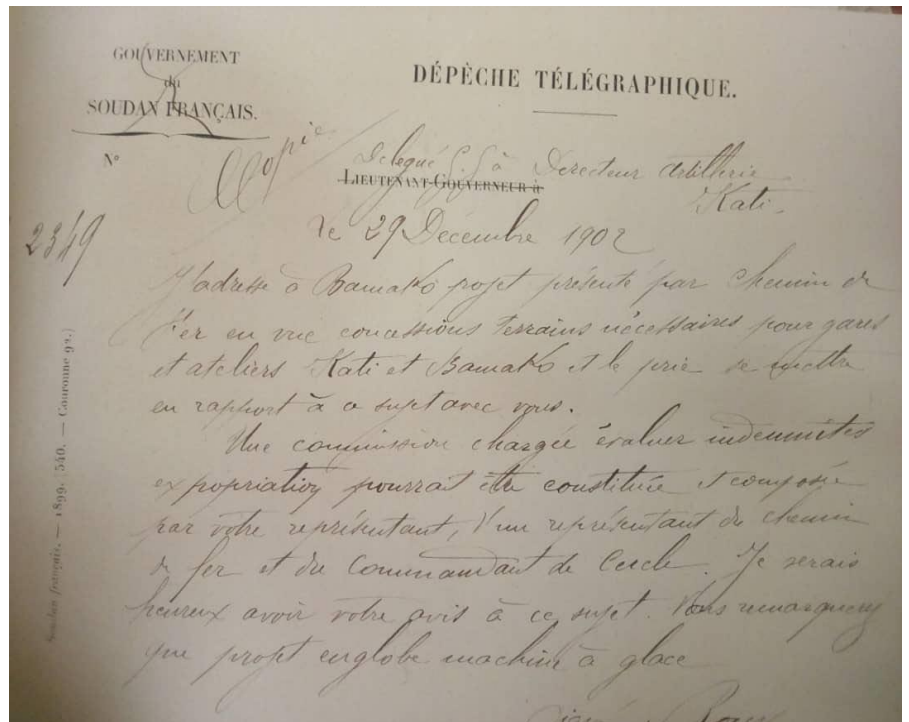 GOUVERNEMENT
du
SOUDAN FRANÇAIS.
DÉPÈCHE TÉLÉGRAPHIQUE.
N°
Copie
Delegué G. G. à Directeur Artillerie
LIEUTENANT-GOUVERNEUR à
Kati.
2349
le 29 Décembre 1902
J'adresse à Bamako projet présenté par Chemin de
Fer en vue concessions terrains nécessaires pour gares
et ateliers Kati et Bamako et le prie se mettre
en rapport à ce sujet avec vous.
Une commission chargée évaluer indemnités
expropriation pourrait être constituée et composée
par votre représentant, d'un représentant du chemin
de fer et du Commandant de Cercle. Je serais
heureux avoir votre avis à ce sujet. Vous remarquerez
que projet englobe machine à glace
Soudan français. — 1899. 540. — Couronne 92.